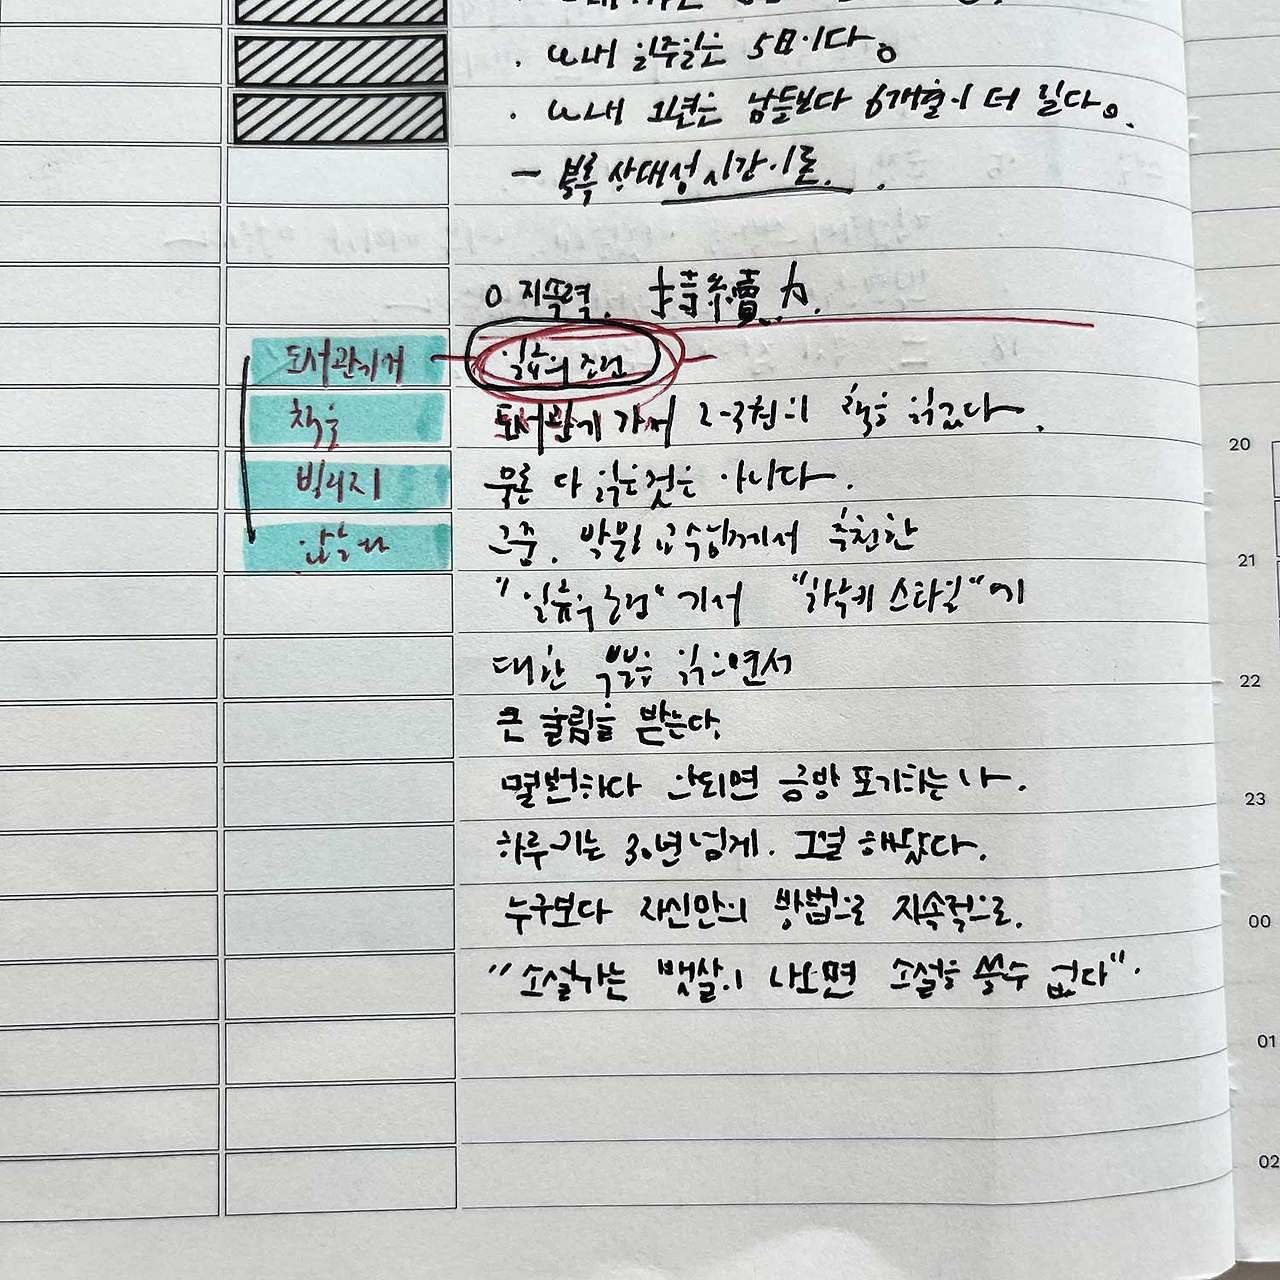 · 내 일주일은 5日이다.
· 내 1년은 남들보다 6개월이 더 길다.
- 블록 상대성 시간 이론.
○ 지속력. 持続賣力.
도서관에서
일류의 조건
책을
도서관에 가서 2-3권의 책을 읽었다.
빌리지
물론 다 읽은것은 아니다.
않는다
그중. 박문호 교수님께서 추천한
"일류의 조건"에서 "하루키 스타일"에
대한 부분을 읽으면서
큰 울림을 받는다.
몇번하다 안되면 금방 포기하는 나.
하루키는 30년 넘게. 그걸 해왔다.
누구보다 자신만의 방법으로 지속적으로.
"소설가는 뱃살이 나오면 소설을 쓸수 없다".
20
21
22
23
00
01
02